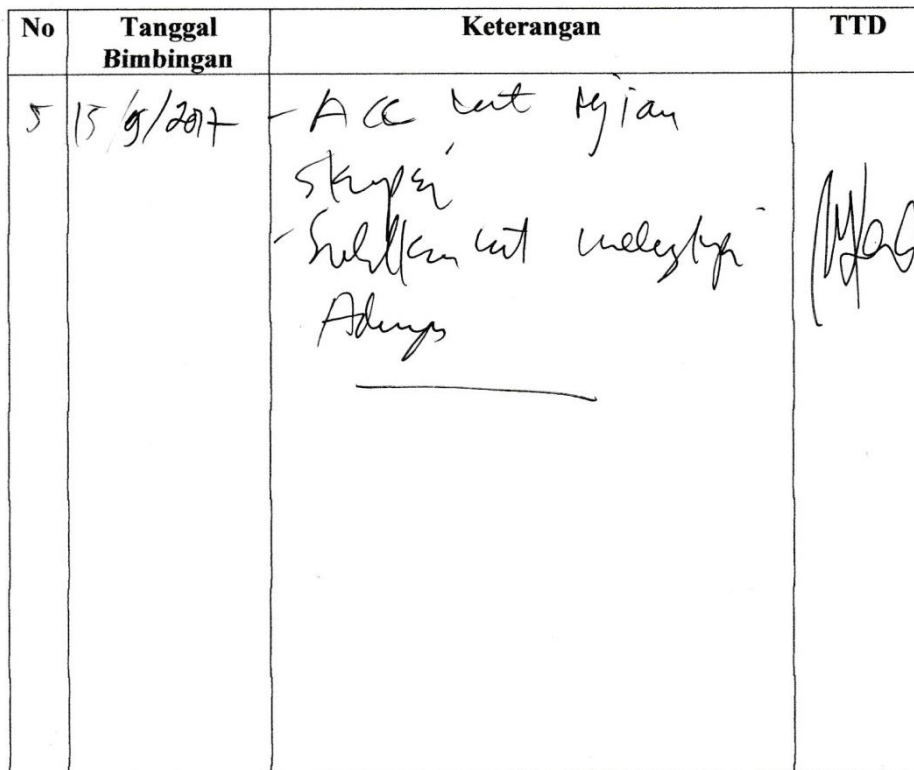 No Tanggal Bimbingan Keterangan TTD
5 15/9/2017 - ACC unt Ujian
Skripsi
- Silahkan unt melengkapi
Adm